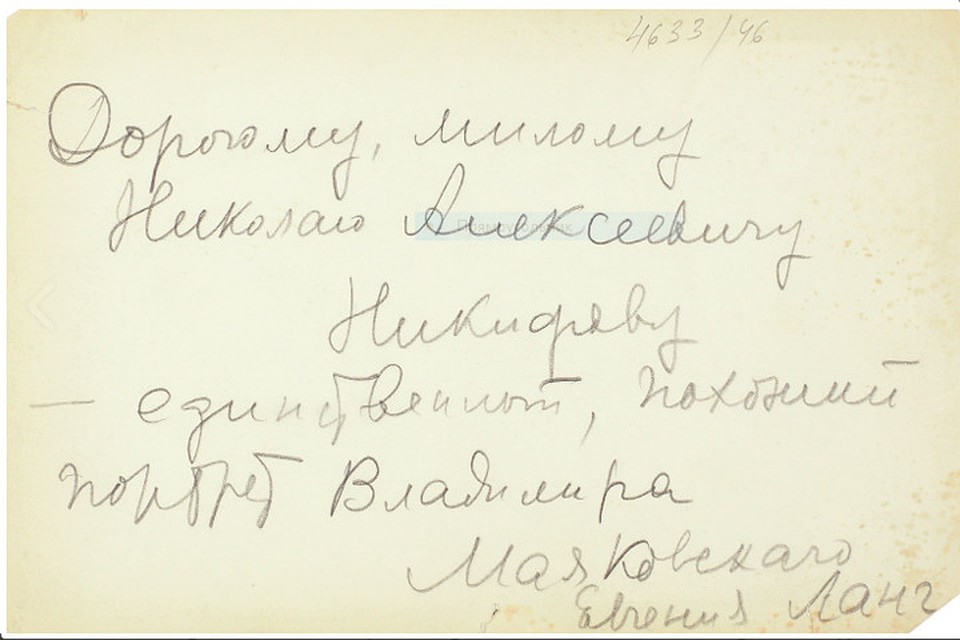 4633/46
Дорогому, милому
Николаю Алексеевичу
Никифрову
— единственный, похожий
портрет Владимира
Маяковскаго
Евгения Ланг